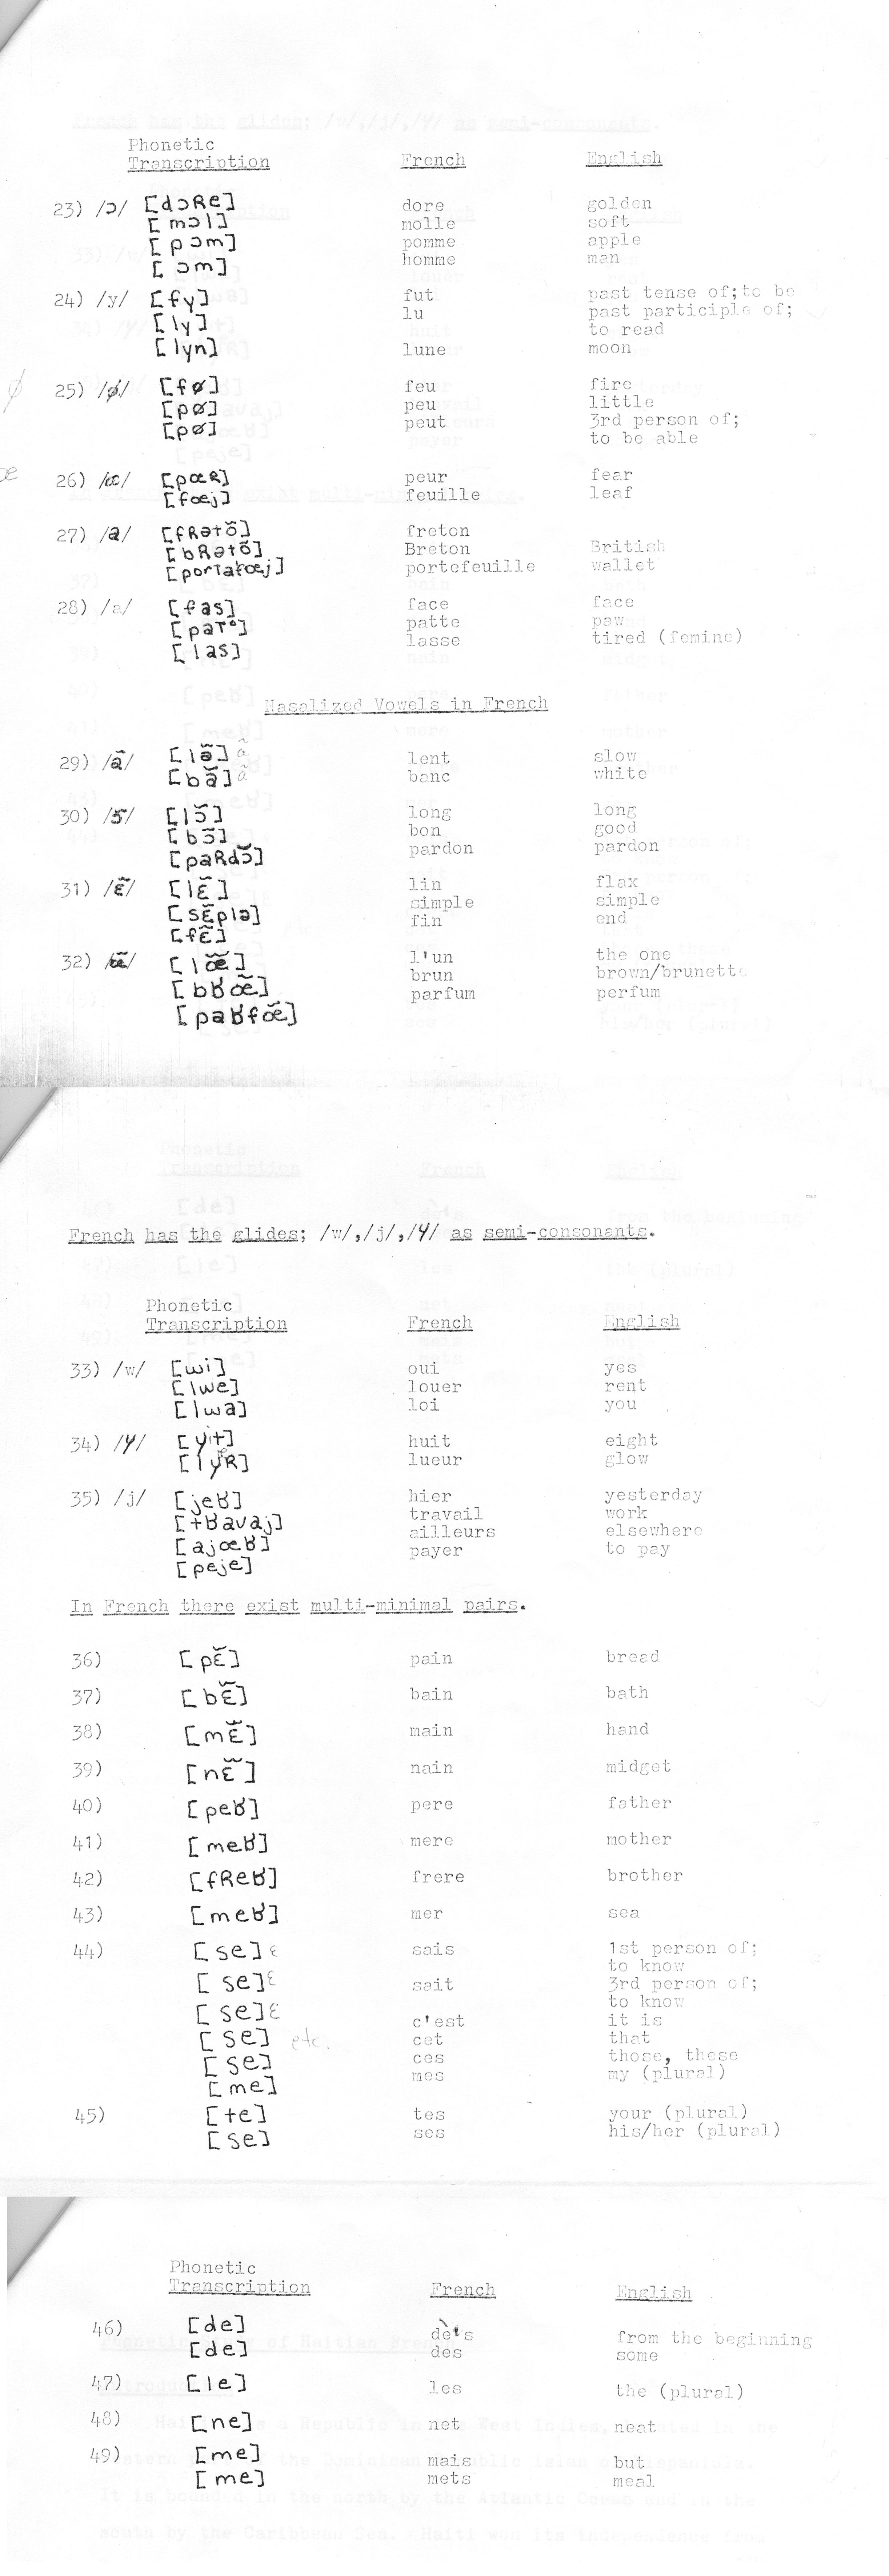 Phonetic
Transcription French English
23) /ɔ/ [dɔRe] dore golden
[mɔl] molle soft
[pɔm] pomme apple
[ɔm] homme man
24) /y/ [fy] fut past tense of;to be
[ly] lu past participle of;
to read
[lyn] lune moon
25) /ø/ [fø] feu fire
[pø] peu little
[pø] peut 3rd person of;
to be able
26) /œ/ [pœR] peur fear
[fœj] feuille leaf
27) /ə/ [fRətɔ̃] freton
[bRətɔ̃] Breton British
[portəfœj] portefeuille wallet
28) /a/ [fas] face face
[patᵊ] patte paw
[las] lasse tired (femine)
Nasalized Vowels in French
29) /ã/ [lã] ã lent slow
[bã] ã banc white
30) /ɔ̃/ [lɔ̃] long long
[bɔ̃] bon good
[paRdɔ̃] pardon pardon
31) /ɛ̃/ [lɛ̃] lin flax
[sɛ̃plə] simple simple
[fɛ̃] fin end
32) /œ̃/ [lœ̃] l'un the one
[bʁœ̃] brun brown/brunette
[paʁfœ̃] parfum perfum
French has the glides; /w/,/j/,/ɥ/ as semi-consonants.
Phonetic
Transcription French English
33) /w/ [wi] oui yes
[lwe] louer rent
[lwa] loi you
34) /ɥ/ [ɥit] huit eight
[lɥœR] lueur glow
35) /j/ [jeʁ] hier yesterday
[tʁavaj] travail work
[ajœʁ] ailleurs elsewhere
[peje] payer to pay
In French there exist multi-minimal pairs.
36) [pɛ̃] pain bread
37) [bɛ̃] bain bath
38) [mɛ̃] main hand
39) [nɛ̃] nain midget
40) [peʁ] pere father
41) [meʁ] mere mother
42) [fReʁ] frere brother
43) [meʁ] mer sea
44) [se] ɛ sais 1st person of;
to know
[se] ɛ sait 3rd person of;
to know
[se] ɛ c'est it is
[se] etc. cet that
[se] ces those, these
[me] mes my (plural)
45) [te] tes your (plural)
[se] ses his/her (plural)
Phonetic
Transcription French English
46) [de] dès from the beginning
[de] des some
47) [le] les the (plural)
48) [ne] net neat
49) [me] mais but
[me] mets meal